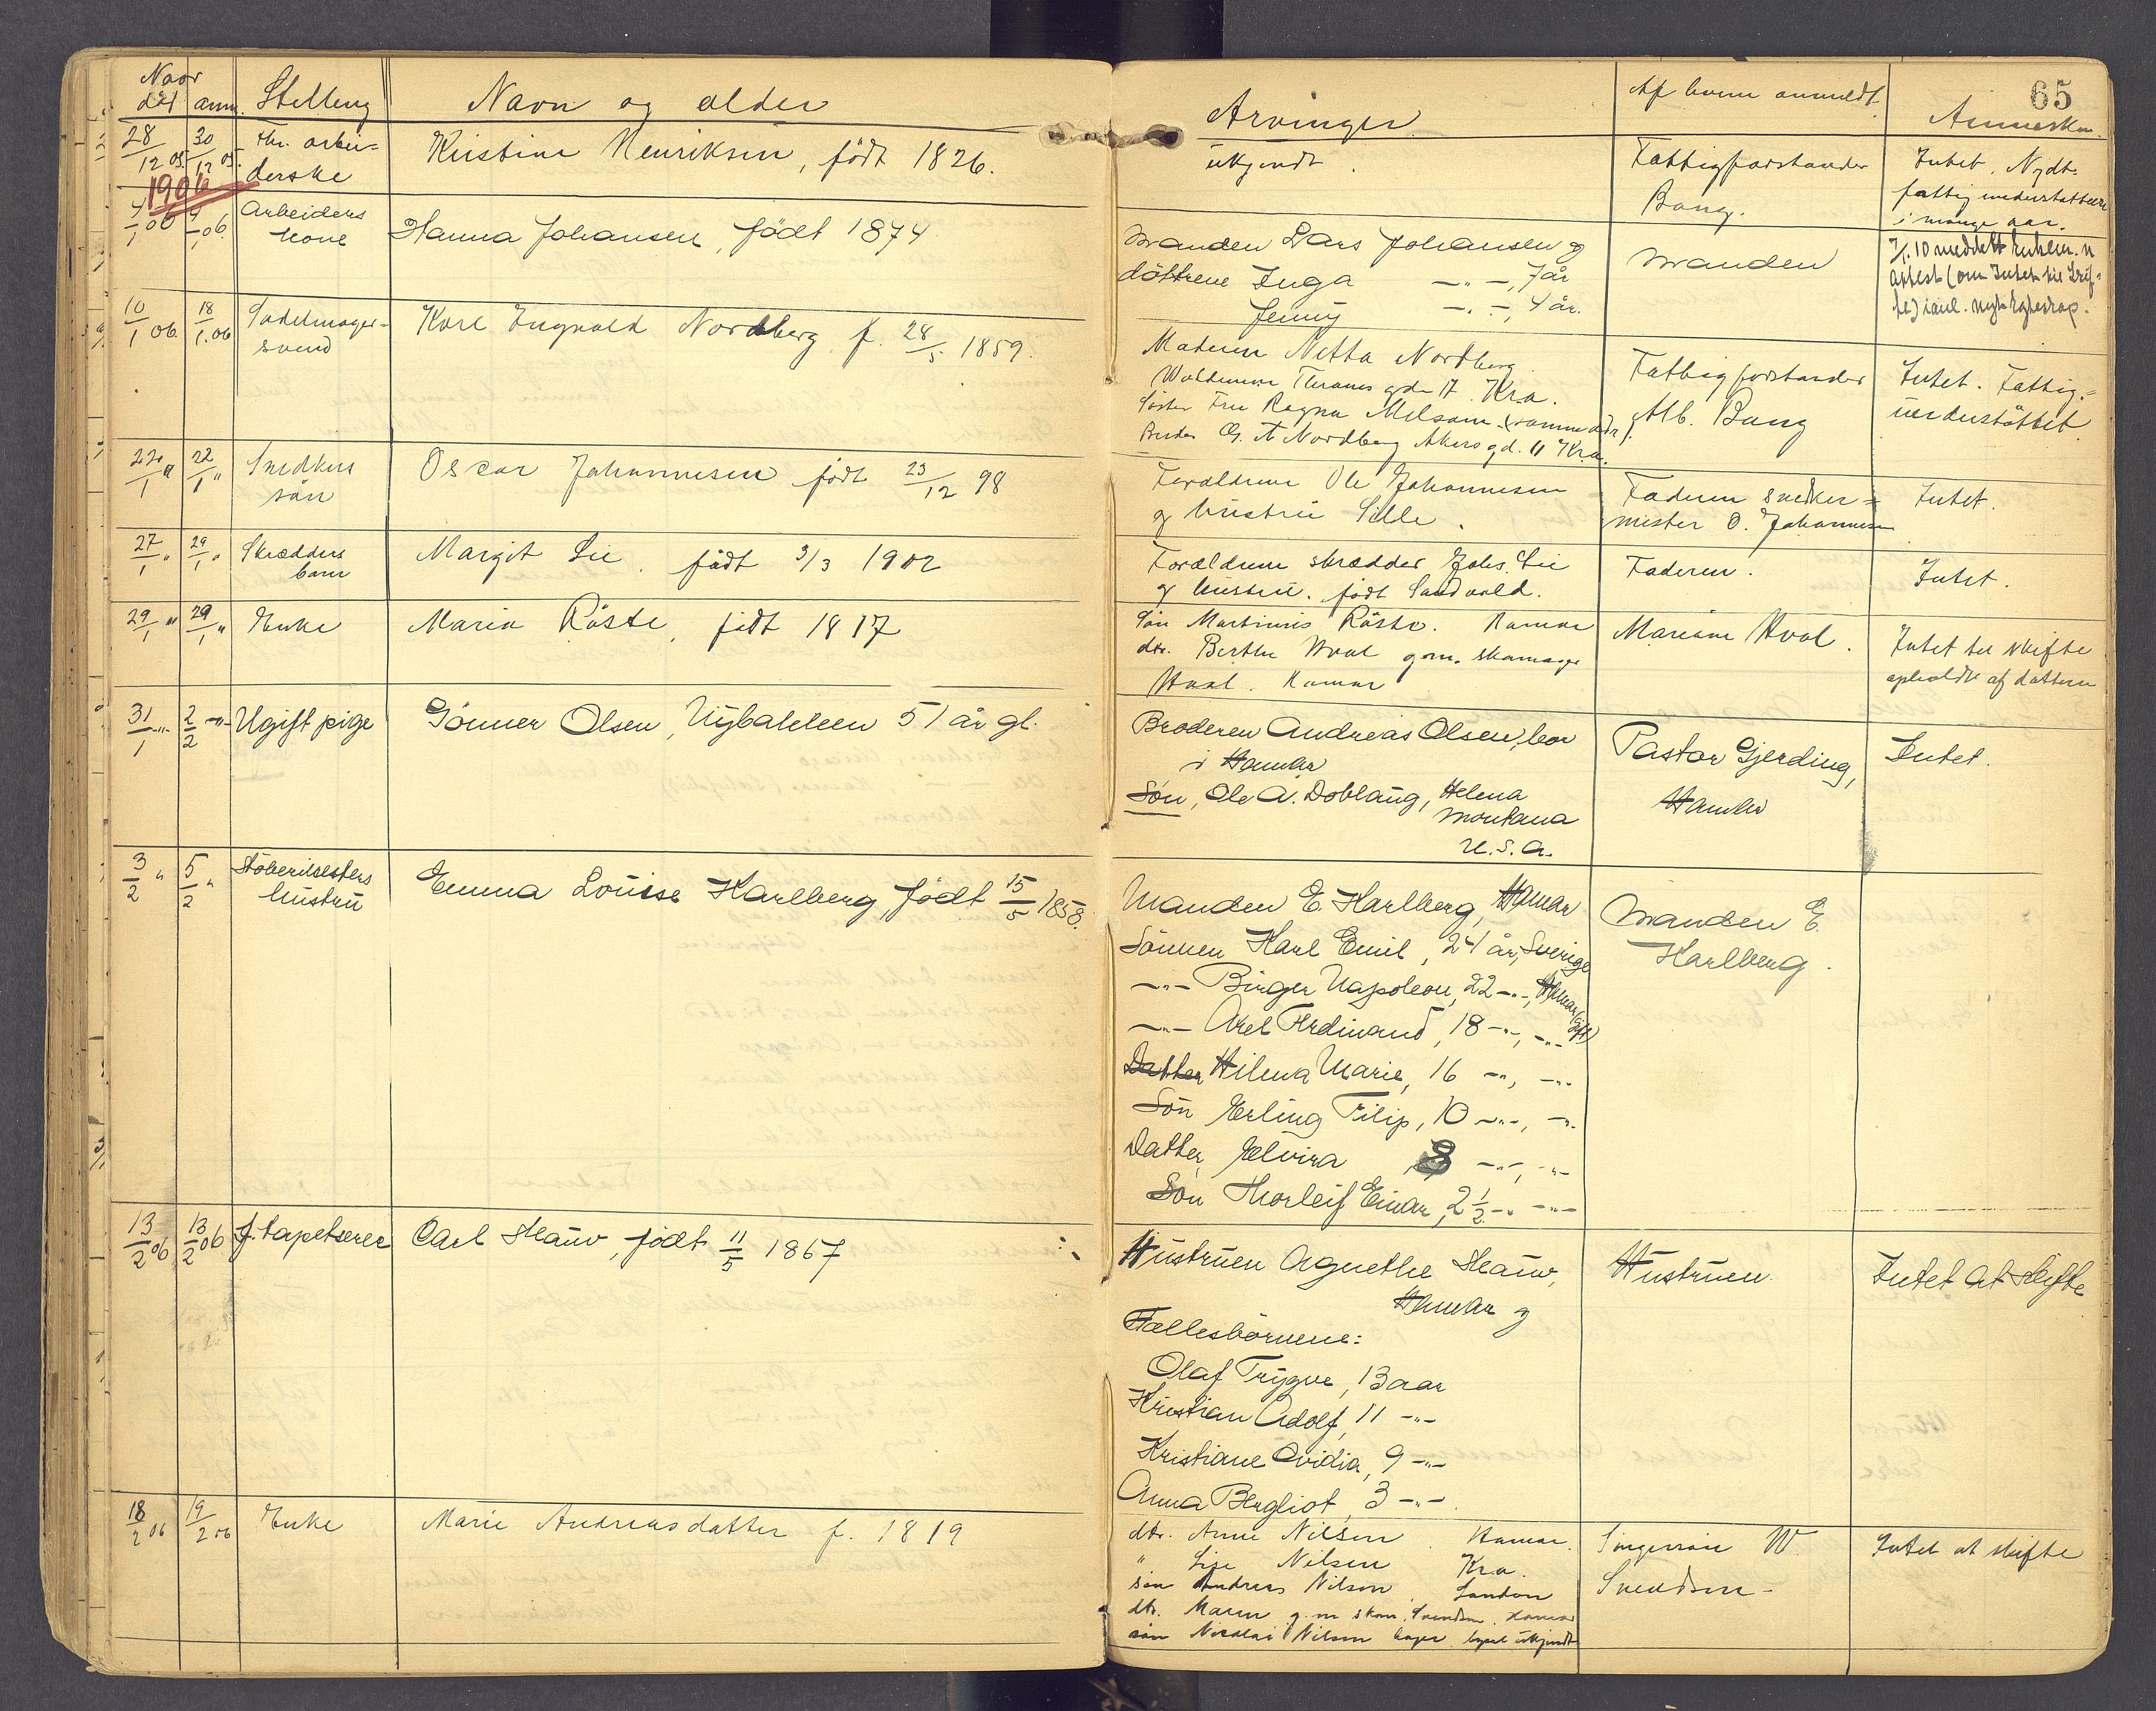 65
Naar
död anm. Stilling Navn og alder Arvinger Af hvem anmeldt Anmerkn.
28/12 05. 30/12 05. Fhv. arbei-
derske
Kristine Henriksen, födt 1826.
ukjendt.
Fattigforstander
Bang.
Intet. Nydt
fattigunderstøttelse
i mange aar.
1906
4/1 06 4/1 06. Arbeiders
kone
Hanna Johansen, födt 1874
Manden Lars Johansen og
döttrene Inga —"—, 7 år
Jenny —"—, 4 år.
Manden
10/1 06. 18/1. 06 Sadelmager-
svend
Karl Ingvald Nordberg, f. 28/5 1859.
Moderen Netta Nordberg
Waldemar Thranes gde 17. Kra.
Söster Fru Ragna Melsom (samme adr.)
Broder A. Nordberg Akersgd. 11 Kra.
Fattigforstander
Alb. Bang
Intet. Fattig-
understöttet.
22/1 " 22/1 " Snedkers
sön
Oscar Johannesen födt 23/12 98
Foraldrene Ole Johannesen
og hustru Sille.
Faderen snedker-
mester O. Johannesen
Intet.
27/1 " 29/1 " Skrædders
barn
Margit Lie. födt 3/3 1902
Forældrene skrædder Johs. Lie
og hustru. födt Sandvold.
Faderen.
Intet.
29/1 " 29/1 " Enke
Maria Röste, födt 1817
Sön Martinius Röste. Hamar
dtr. Berthe Hval g.m. skomager
Hval. Hamar
Mariane Hval.
Intet til skifte
opholdt af datteren
31/1 —"— 2/2 —"— Ugift pige
Gönner Olsen, Nybakken 51 år gl.
Broderen Andreas Olsen, bor
i Hamar
Sön, Ole A. Doblaug, Helena
Montana
U.S.A.
Pastor Gjerding,
Hamar
Intet.
3/2 " 5/2 " Stöberimesters
hustru
Emma Louise Karlberg, födt 15/5 1858.
Manden E. Karlberg, Hamar
Sönnen Karl Emil, 24 år, Sverige
—"— Birger Napoleon, 22 —"—, Hamar (gift)
—"— Axel Ferdinand, 18 —"—, —"—
Datter Hilma Marie, 16 —"—, —"—
Sön Erling Filip, 10 —"—, —"—
Datter Elvira 8 —"—, —"—
Sön Thorleif Einar, 2 1/2 —"— —"—
Manden E.
Karlberg.
13/2 06 13/2 06 f. tapetserer
Carl Hauv, födt 11/5 1867
Hustruen Agnethe Hauv,
Hamar og
Fællesbörnene:
Olaf Trygve, 13 aar
Kristian Adolf, 11 —"—
Kristiane Ovidia, 9 —"—
Anna Bergliot, 3 —"—.
Hustruen.
Intet at skifte
18/2 06 19/2 06 Enke
Marie Andreasdatter f. 1819
dtr. Anne Nilsen. Hamar.
" Lise Nilsen Kra.
sön Andreas Nilsen, London
dtr. Maren g.m. skom. Svendsen. Hamar
sön Nicolai Nilsen bopæl ukjendt
W.
Svendsen
Intet at skifte